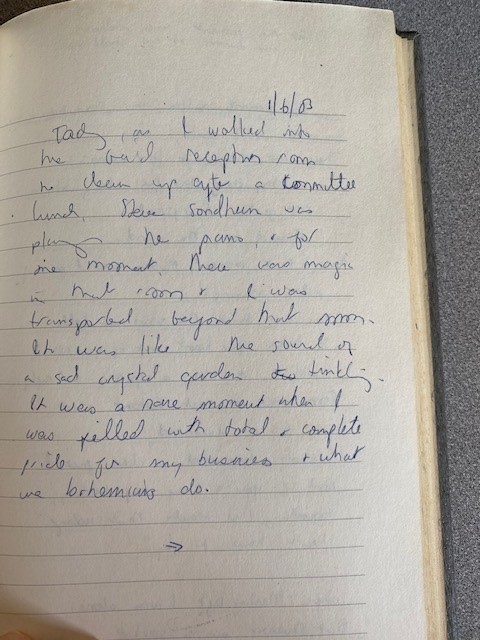 1/6/03
Today, as I walked into
the Guild reception room
to clean up after a Committee
lunch, Steve Sondheim was
playing the piano, & for
one moment, there was magic
in that room & I was
transported beyond that room.
It was like the sound of
a sad crystal garden tinkling.
It was a rare moment when I
was filled with total & complete
pride for my business & what
we bohemians do.
→